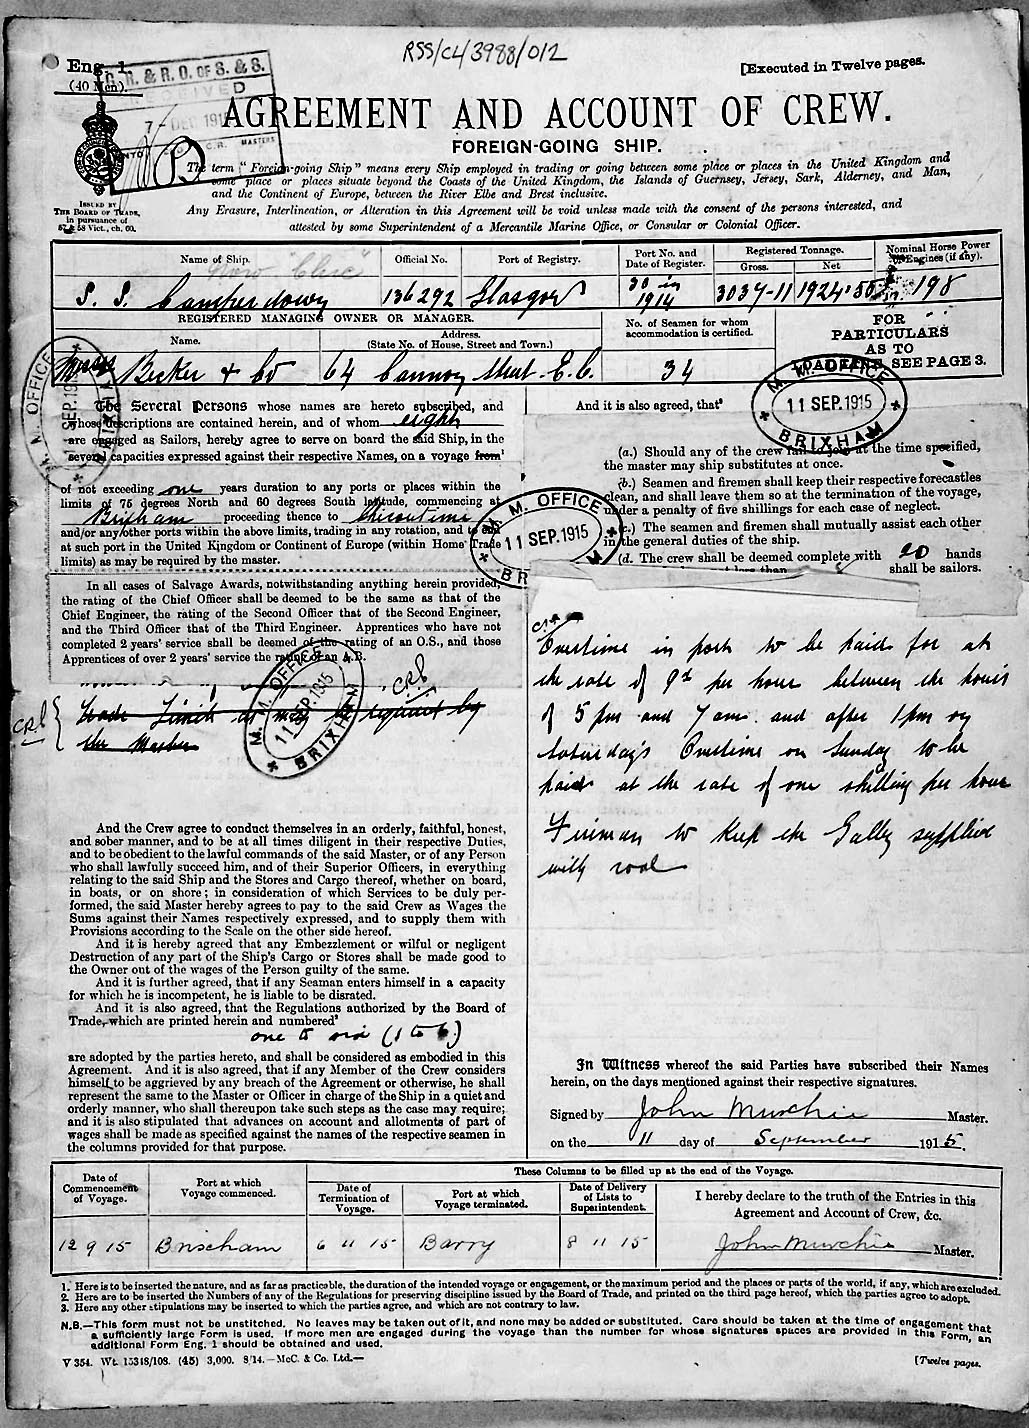 RSS/CL/3988/012
Eng. 1
(40 Men).
[Executed in Twelve pages.
G. R. & R. O. OF S. & S.
RECEIVED
7 – DEC. 191
AGREEMENT AND ACCOUNT OF CREW.
FOREIGN-GOING SHIP.
The term “Foreign-going Ship” means every Ship employed in trading or going between some place or places in the United Kingdom and
some place or places situate beyond the Coasts of the United Kingdom, the Islands of Guernsey, Jersey, Sark, Alderney, and Man,
and the Continent of Europe, between the River Elbe and Brest inclusive.
ISSUED BY
THE BOARD OF TRADE,
in pursuance of
57 & 58 Vict., ch. 60.
Any Erasure, Interlineation, or Alteration in this Agreement will be void unless made with the consent of the persons interested, and
attested by some Superintendent of a Mercantile Marine Office, or Consular or Colonial Officer.
Name of Ship. Official No. Port of Registry. Port No. and Date of Register. Registered Tonnage. Gross. Net Nominal Horse Power of Engines (if any).
now
S. S. Camperdown 136292 Glasgow 30 in 1914 3037-11 1924.50 198
REGISTERED MANAGING OWNER OR MANAGER.
Name. Address. (State No. of House, Street and Town.)
No. of Seamen for whom accommodation is certified.
FOR PARTICULARS AS TO LOAD LINE, SEE PAGE 3.
Messrs Becker & Co 64 Cannon Street E.C. 34
M. M. OFFICE
11 SEP. 1915
BRIXHAM
The Several Persons whose names are hereto subscribed, and
whose descriptions are contained herein, and of whom eight
are engaged as Sailors, hereby agree to serve on board the said Ship, in the
several capacities expressed against their respective Names, on a voyage from¹
of not exceeding one years duration to any ports or places within the
limits of 75 degrees North and 60 degrees South latitude, commencing at
Brixham proceeding thence to
and/or any other ports within the above limits, trading in any rotation, and to end
at such port in the United Kingdom or Continent of Europe (within Home Trade
limits) as may be required by the master.
In all cases of Salvage Awards, notwithstanding anything herein provided,
the rating of the Chief Officer shall be deemed to be the same as that of the
Chief Engineer, the rating of the Second Officer that of the Second Engineer,
and the Third Officer that of the Third Engineer. Apprentices who have not
completed 2 years' service shall be deemed of the rating of an O.S., and those
Apprentices of over 2 years' service the rating of an A.B.
CRB
CRB Trade Limits as may be required by
the Master
M. M. OFFICE
11 SEP. 1915
BRIXHAM
And the Crew agree to conduct themselves in an orderly, faithful, honest,
and sober manner, and to be at all times diligent in their respective Duties,
and to be obedient to the lawful commands of the said Master, or of any Person
who shall lawfully succeed him, and of their Superior Officers, in everything
relating to the said Ship and the Stores and Cargo thereof, whether on board,
in boats, or on shore; in consideration of which Services to be duly per-
formed, the said Master hereby agrees to pay to the said Crew as Wages the
Sums against their Names respectively expressed, and to supply them with
Provisions according to the Scale on the other side hereof.
And it is hereby agreed that any Embezzlement or wilful or negligent
Destruction of any part of the Ship's Cargo or Stores shall be made good to
the Owner out of the wages of the Person guilty of the same.
And it is further agreed, that if any Seaman enters himself in a capacity
for which he is incompetent, he is liable to be disrated.
And it is also agreed, that the Regulations authorized by the Board of
Trade, which are printed herein and numbered²
one to six (1 to 6)
are adopted by the parties hereto, and shall be considered as embodied in this
Agreement. And it is also agreed, that if any Member of the Crew considers
himself to be aggrieved by any breach of the Agreement or otherwise, he shall
represent the same to the Master or Officer in charge of the Ship in a quiet and
orderly manner, who shall thereupon take such steps as the case may require;
and it is also stipulated that advances on account and allotments of part of
wages shall be made as specified against the names of the respective seamen in
the columns provided for that purpose.
And it is also agreed, that³
M. M. OFFICE
11 SEP. 1915
BRIXHAM
(a.) Should any of the crew fail to join at the time specified,
the master may ship substitutes at once.
(b.) Seamen and firemen shall keep their respective forecastles
clean, and shall leave them so at the termination of the voyage,
under a penalty of five shillings for each case of neglect.
(c.) The seamen and firemen shall mutually assist each other
in the general duties of the ship.
(d. The crew shall be deemed complete with 20 hands
shall be sailors.
M. M. OFFICE
11 SEP. 1915
BR
Overtime in port to be paid for at
the rate of 9d per hour between the hours
of 5 pm and 7 am. and after 1 pm on
Saturday's Overtime on Sunday to be
paid at the rate of one shilling per hour
Fireman to keep the Galley supplied
with coal
In Witness whereof the said Parties have subscribed their Names
herein, on the days mentioned against their respective signatures.
Signed by John Murchie Master.
on the 11 day of September 1915.
These Columns to be filled up at the end of the Voyage.
Date of Commencement of Voyage. Port at which Voyage commenced. Date of Termination of Voyage. Port at which Voyage terminated. Date of Delivery of Lists to Superintendent.
I hereby declare to the truth of the Entries in this
Agreement and Account of Crew, &c.
12 9 15 Brixham 6 11 15 Barry 8 11 15 John Murchie Master.
1. Here is to be inserted the nature, and as far as practicable, the duration of the intended voyage or engagement, or the maximum period and the places or parts of the world, if any, which are excluded.
2. Here are to be inserted the Numbers of any of the Regulations for preserving discipline issued by the Board of Trade, and printed on the third page hereof, which the parties agree to adopt.
3. Here any other stipulations may be inserted to which the parties agree, and which are not contrary to law.
N.B.—This form must not be unstitched. No leaves may be taken out of it, and none may be added or substituted. Care should be taken at the time of engagement that
a sufficiently large Form is used. If more men are engaged during the voyage than the number for whose signatures spaces are provided in this Form, an
additional Form Eng. 1 should be obtained and used.
V 354. Wt. 15348/108. (45) 3,000. 8/14.—McC. & Co. Ltd.—
[Twelve pages.